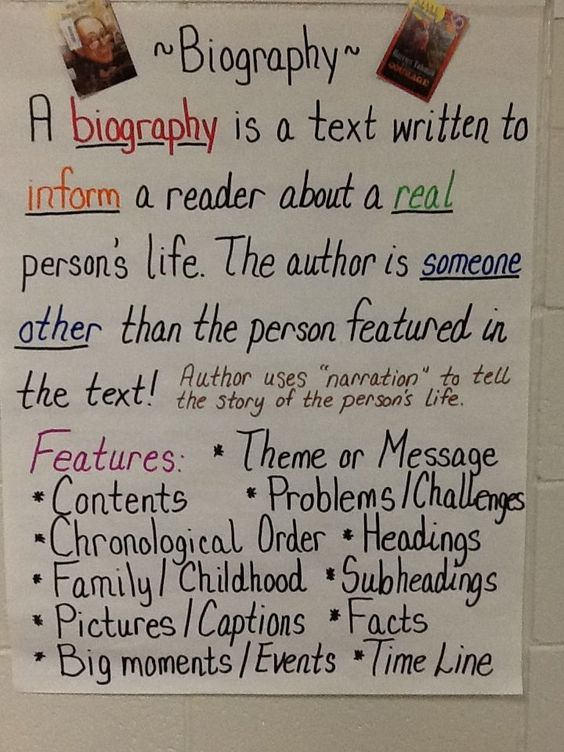 ~Biography~
A biography is a text written to
inform a reader about a real
person's life. The author is someone
other than the person featured in
the text! Author uses "narration" to tell
the story of the person's life.
Features: * Theme or Message
* Contents * Problems/Challenges
* Chronological Order * Headings
* Family/Childhood * Subheadings
* Pictures/Captions * Facts
* Big moments/Events * Time Line